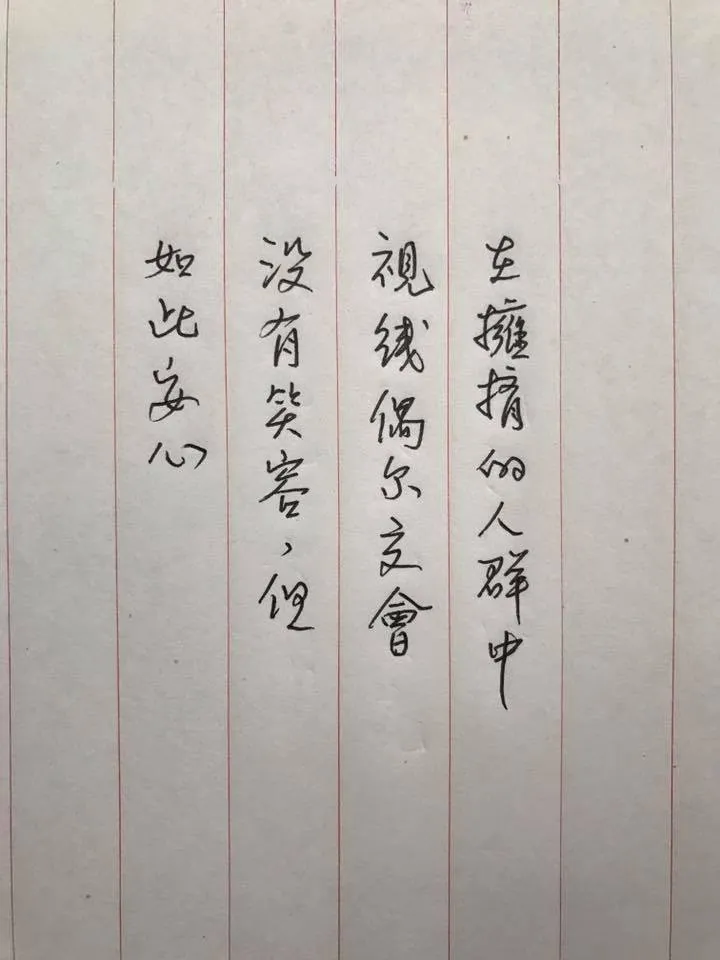 在擁擠的人群中
視线偶尔交會
没有笑容，但
如此安心